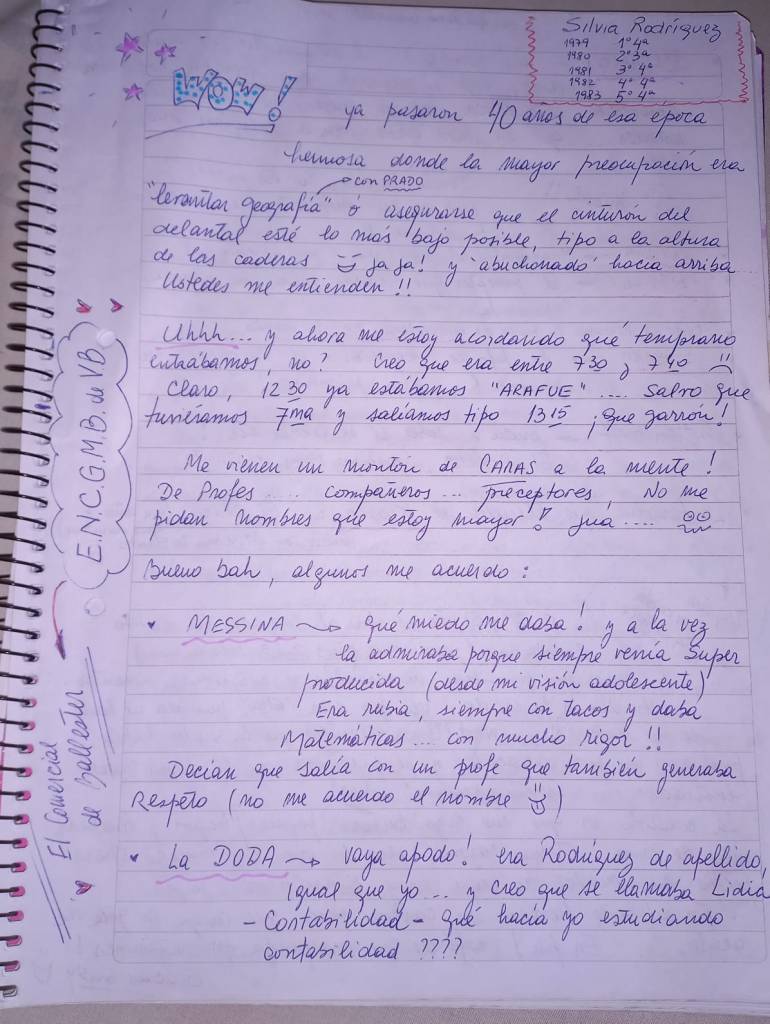 Silvia Rodríguez
1979 1º 4ª
1980 2º 3ª
1981 3º 4ª
1982 4º 4ª
1983 5º 4ª
WOW!
ya pasaron 40 años de esa época
hermosa donde la mayor preocupación era
con PRADO
"levantar geografía" ó asegurarse que el cinturón del
delantal esté lo más bajo posible, tipo a la altura
de las caderas ja ja! y 'abuchonado' hacia arriba...
Ustedes me entienden!!
Uhhh... y ahora me estoy acordando qué temprano
entrábamos, no? Creo que era entre 730 y 740
Claro, 1230 ya estábamos "ARAFUE".... Salvo que
tuvieramos 7ma y salíamos tipo 1315 ¡que garrón!
Me vienen un montón de CARAS a la mente!
De Profes .... compañeros... preceptores, No me
pidan nombres que estoy mayor! juá....
Bueno bah, algunos me acuerdo:
MESSINA → qué miedo me daba! y a la vez
la admiraba porque siempre venía super
producida (desde mi visión adolescente)
Era rubia, siempre con tacos y daba
Matemáticas... con mucho rigor!!
Decían que salía con un profe que también generaba
Respeto (no me acuerdo el nombre)
La DODA → vaya apodo! era Rodríguez de apellido,
igual que yo... y creo que se llamaba Lidia
- Contabilidad - qué hacía yo estudiando
contabilidad ????
E.N.C.G.M.B. de VB
El Comercial
de Ballester